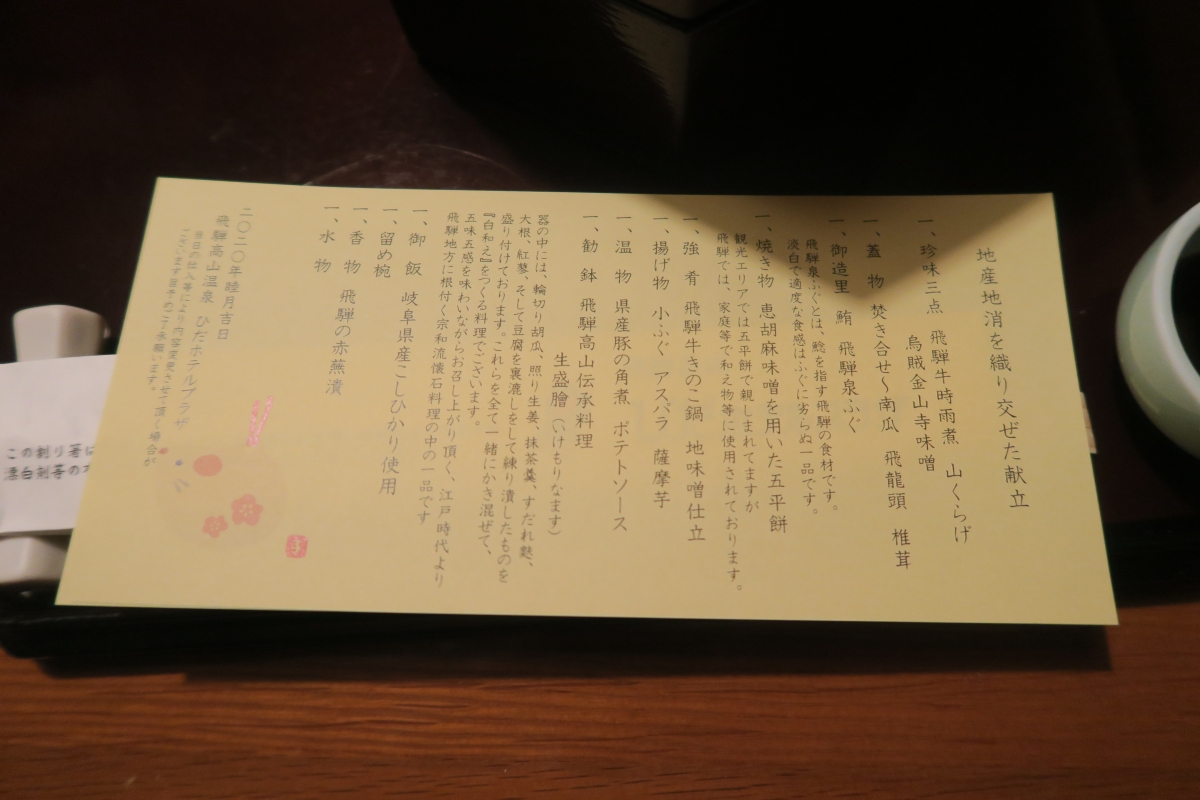 地産地消を織り交ぜた献立
一、珍味三点 飛騨牛時雨煮 山くらげ
烏賊金山寺味噌
一、蓋 物 焚き合せ～南瓜 飛龍頭 椎茸
一、御造里 鮪 飛騨泉ふぐ
飛騨泉ふぐとは、鯰を指す飛騨の食材です。
淡白で適度な食感はふぐに劣らぬ一品です。
一、焼き物 恵胡麻味噌を用いた五平餅
観光エリアでは五平餅で親しまれてますが
飛騨では、家庭等で和え物等に使用されております。
一、強 肴 飛騨牛きのこ鍋 地味噌仕立
一、揚げ物 小ふぐ アスパラ 薩摩芋
一、温 物 県産豚の角煮 ポテトソース
一、勧 鉢 飛騨高山伝承料理
生盛膾（いけもりなます）
器の中には、輪切り胡瓜、照り生姜、抹茶羹、すだれ麩、
大根、紅蓼、そして豆腐を裏漉しをして練り潰したものを
盛り付けております。これらを全て一緒にかき混ぜて、
『白和え』をつくる料理でございます。
五味五感を味わいながらお召し上がり頂く、江戸時代より
飛騨地方に根付く宗和流懐石料理の中の一品です
一、御 飯 岐阜県産こしひかり使用
一、留め椀
一、香 物 飛騨の赤蕪漬
一、水 物
二〇二〇年睦月吉日
飛騨高山温泉 ひだホテルプラザ
当日の仕入等により、内容変更させて頂く場合が
ございます旨予めご了承願います。
この割り箸に
漂白剤等の